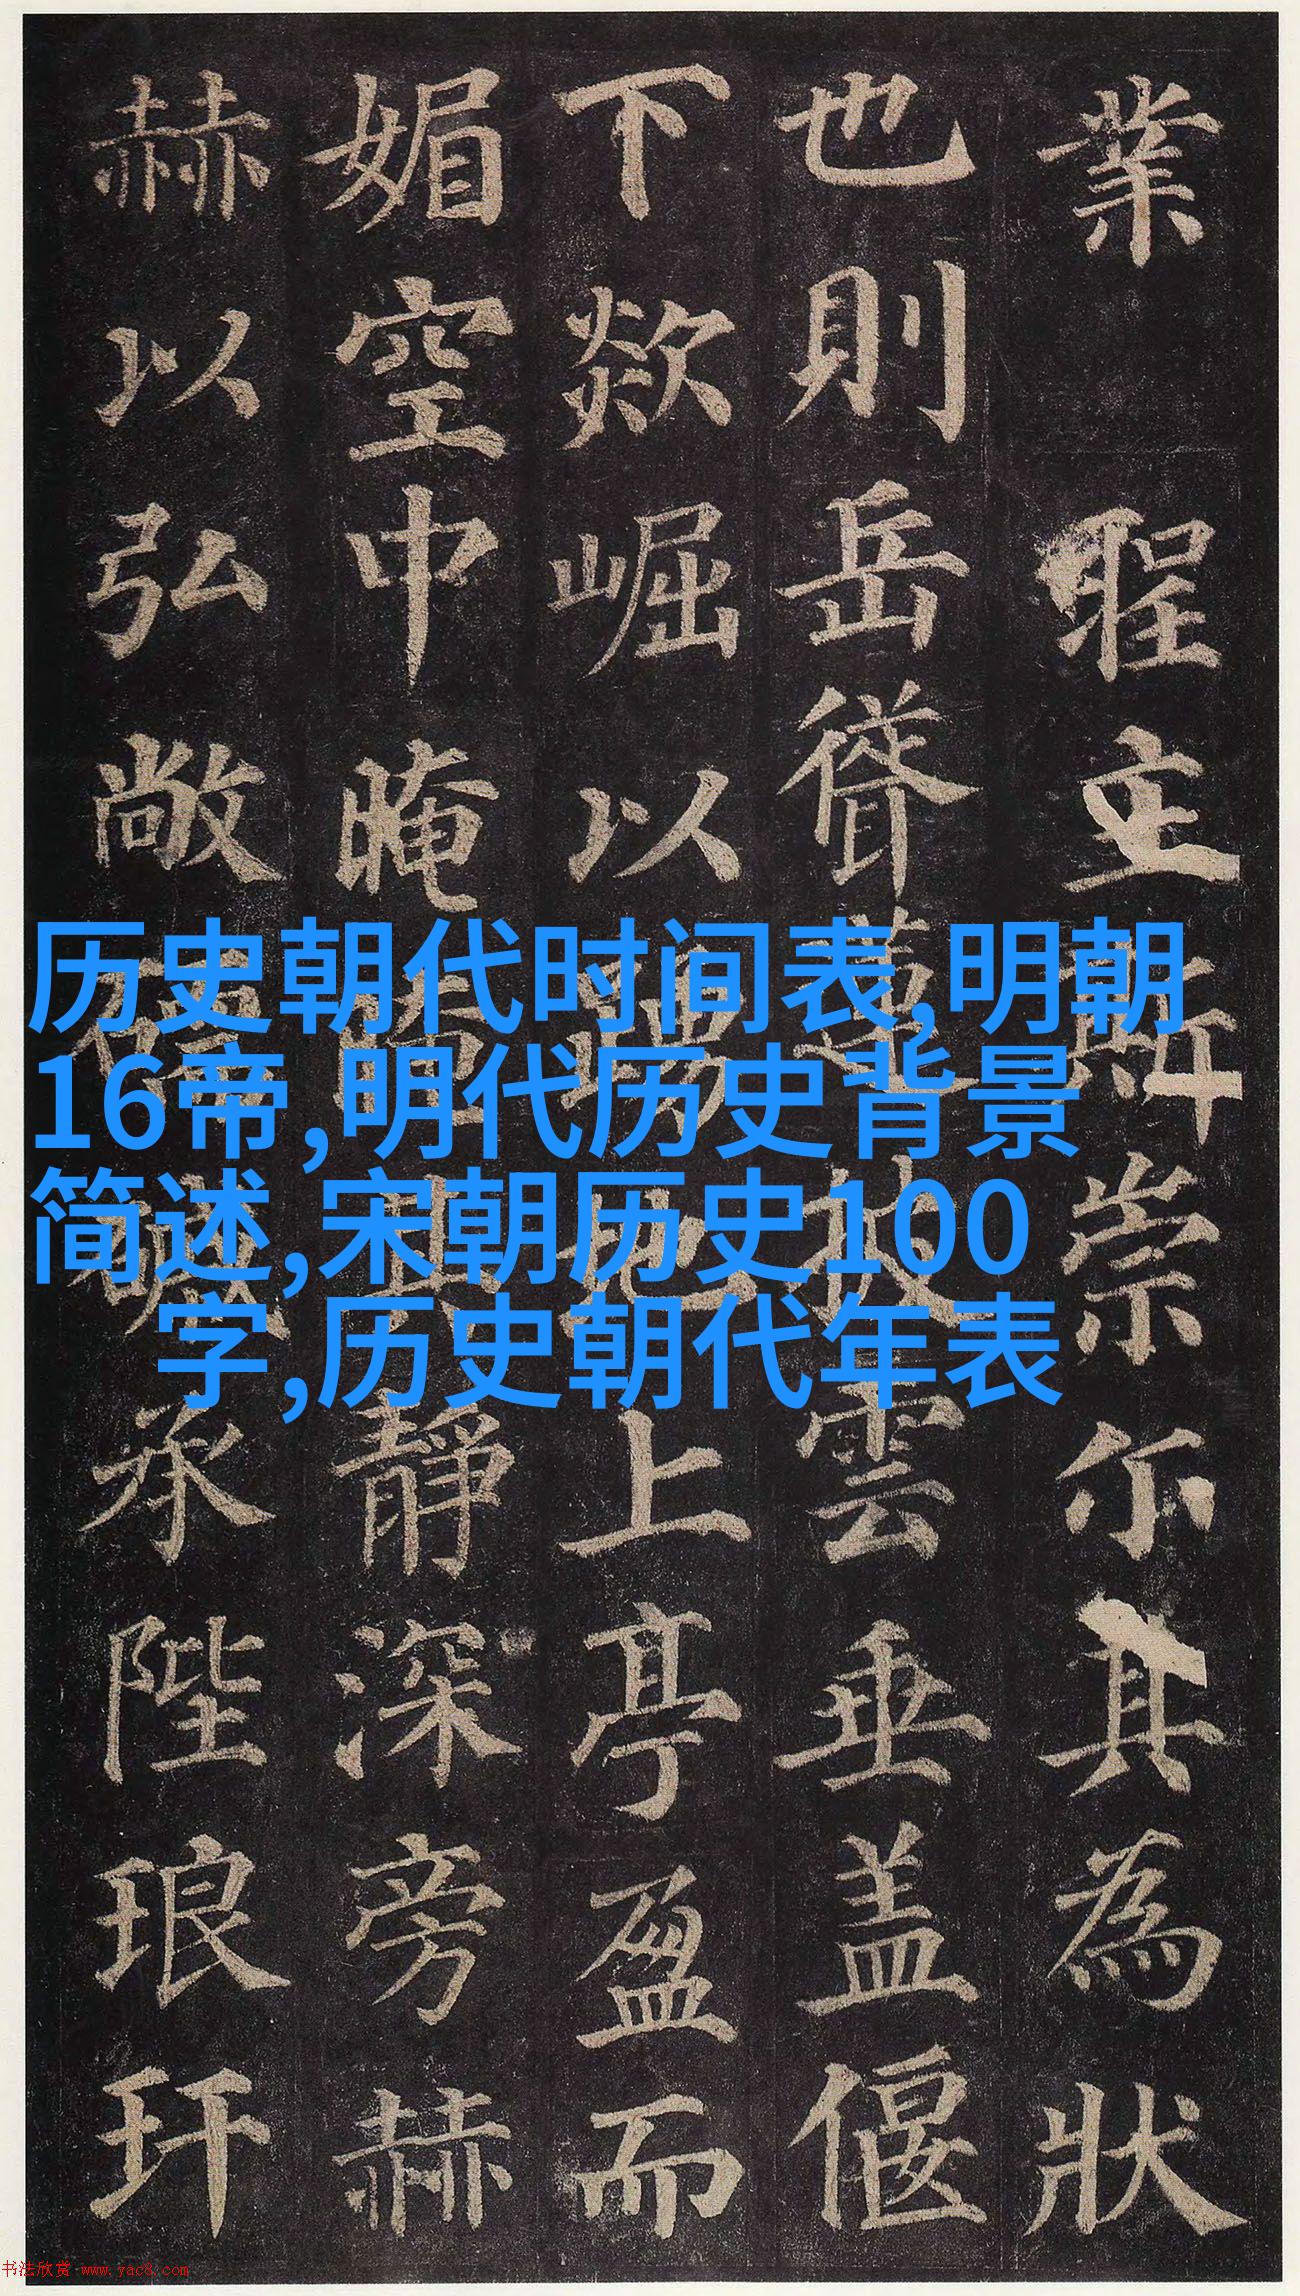 業 聖立斯崇尔其為狀
也則岳聳蓮披雲垂盖偃
下欻崛以踴地上亭盈而
媚空中晻晻其靜深旁赫
赫以弘敞礝磩承陛琅玕
历史朝代时间表,明朝
16帝,明代历史背景
简述,宋朝历史100
字,历史朝代年表
书法欣赏 www.yac8.com